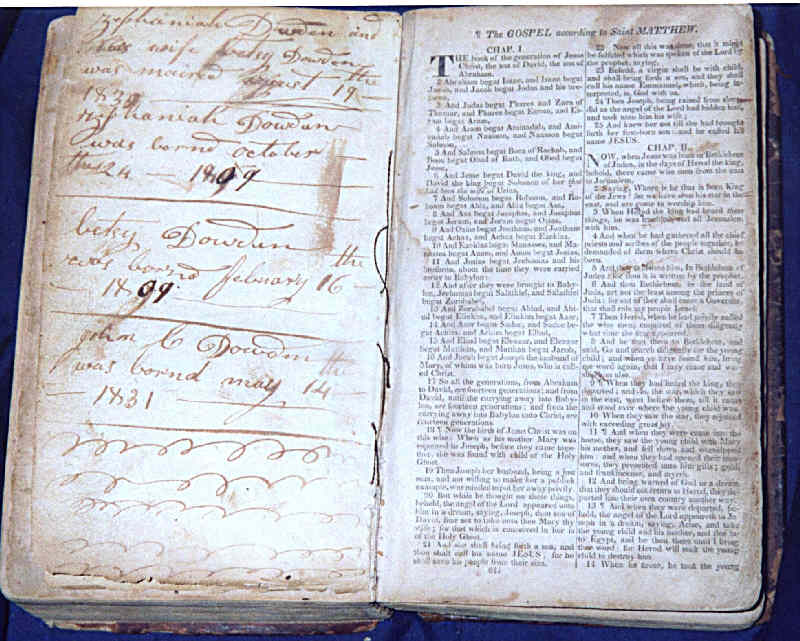 Zephaniah Dowden and
his wife betsy Dowden
was mared august the 19
Zephaniah Dowdun
was bornd october
the 24 — 1809
betsy Dowden
was bornd february the 16
— 1809.
john C Dowden
was bornd may the 14
— 1831
¶ The GOSPEL according to Saint MATTHEW.
CHAP. I.
THE book of the generation of Jesus
Christ, the son of David, the son of
Abraham.
2 Abraham begat Isaac, and Isaac begat
Jacob, and Jacob begat Judas and his
3 And Judas begat Phares and Zara of
Thamar, and Phares begat Esrom, and Es-
rom begat Aram,
4 And Aram begat Aminadab, and Ami-
nadab begat Naasson, and Naasson begat
Salmon,
5 And Salmon begat Booz of Rachab, and
Booz begat Obed of Ruth, and Obed begat
Jesse,
6 And Jesse begat David the king, and
David the king begat Solomon of her that
had been the wife of Urias,
7 And Solomon begat Roboam, and Ro-
boam begat Abia, and Abia begat Asa,
8 And Asa begat Josaphat, and Josaphat
begat Joram, and Joram begat Ozias,
9 And Ozias begat Joatham, and Joatham
begat Achaz, and Achaz begat Ezekias,
10 And Ezekias begat Manasses, and Ma-
nasses begat Amon, and Amon begat Josias,
11 And Josias begat Jechonias and his
brethren, about the time they were carried
away to Babylon:
12 And after they were brought to Baby-
lon, Jechonias begat Salathiel, and Salathiel
begat Zorobabel,
13 And Zorobabel begat Abiud, and Abi-
ud begat Eliakim, and Eliakim begat Azor,
14 And Azor begat Sadoc, and Sadoc be-
gat Achim, and Achim begat Eliud,
15 And Eliud begat Eleazar, and Eleazar
begat Matthan, and Matthan begat Jacob,
16 And Jacob begat Joseph the husband of
Mary, of whom was born Jesus, who is call-
ed Christ.
17 So all the generations, from Abraham
to David, are fourteen generations; and from
David, until the carrying away into Baby-
lon, are fourteen generations; and from the
carrying away into Babylon unto Christ, are
fourteen generations.
18 ¶ Now the birth of Jesus Christ was on
this wise: When as his mother Mary was
espoused to Joseph, before they came toge-
ther, she was found with child of the Holy
Ghost.
19 Then Joseph her husband, being a just
man, and not willing to make her a publick
example, was minded to put her away privily.
20 But while he thought on these things,
behold, the angel of the Lord appeared unto
him in a dream, saying, Joseph, thou son of
David, fear not to take unto thee Mary thy
wife; for that which is conceived in her is
of the Holy Ghost.
21 And she shall bring forth a son, and
thou shalt call his name JESUS; for he
shall save his people from their sins.
22 Now all this was done, that it might
be fulfilled which was spoken of the Lord by
the prophet, saying,
23 Behold, a virgin shall be with child,
and shall bring forth a son, and they shall
call his name Emmanuel, which, being in-
terpreted, is, God with us.
24 Then Joseph, being raised from sleep,
did as the angel of the Lord had bidden him,
and took unto him his wife;
25 And knew her not till she had brought
forth her first-born son: and he called his
name JESUS.
CHAP. II.
NOW, when Jesus was born in Bethlehem
of Judea, in the days of Herod the king,
behold, there came wise men from the east
to Jerusalem,
2 Saying, Where is he that is born King
of the Jews? for we have seen his star in the
east, and are come to worship him.
3 When Herod the king had heard these
things, he was troubled, and all Jerusalem
with him.
4 And when he had gathered all the chief
priests and scribes of the people together, he
demanded of them where Christ should be
born.
5 And they said unto him, In Bethlehem of
Judea: for thus it is written by the prophet,
6 And thou Bethlehem, in the land of
Juda, art not the least among the princes of
Juda: for out of thee shall come a Governor,
that shall rule my people Israel.
7 Then Herod, when he had privily called
the wise men, enquired of them diligently
what time the star appeared.
8 And he sent them to Bethlehem, and
said, Go and search diligently for the young
child; and when ye have found him, bring
me word again, that I may come and wor-
ship him also.
9 When they had heard the king, they
departed; and lo, the star, which they saw
in the east, went before them, till it came
and stood over where the young child was.
10 When they saw the star, they rejoiced
with exceeding great joy.
11 ¶ And when they were come into the
house, they saw the young child with Mary
his mother, and fell down and worshipped
him: and when they had opened their trea-
sures, they presented unto him gifts; gold,
and frankincense, and myrrh.
12 And being warned of God in a dream,
that they should not return to Herod, they de-
parted into their own country another way.
13 ¶ And when they were departed, be-
hold, the angel of the Lord appeareth to Jo-
seph in a dream, saying, Arise, and take
the young child and his mother, and flee in-
to Egypt, and be thou there until I bring
thee word: for Herod will seek the young
child to destroy him.
14 When he arose, he took the young